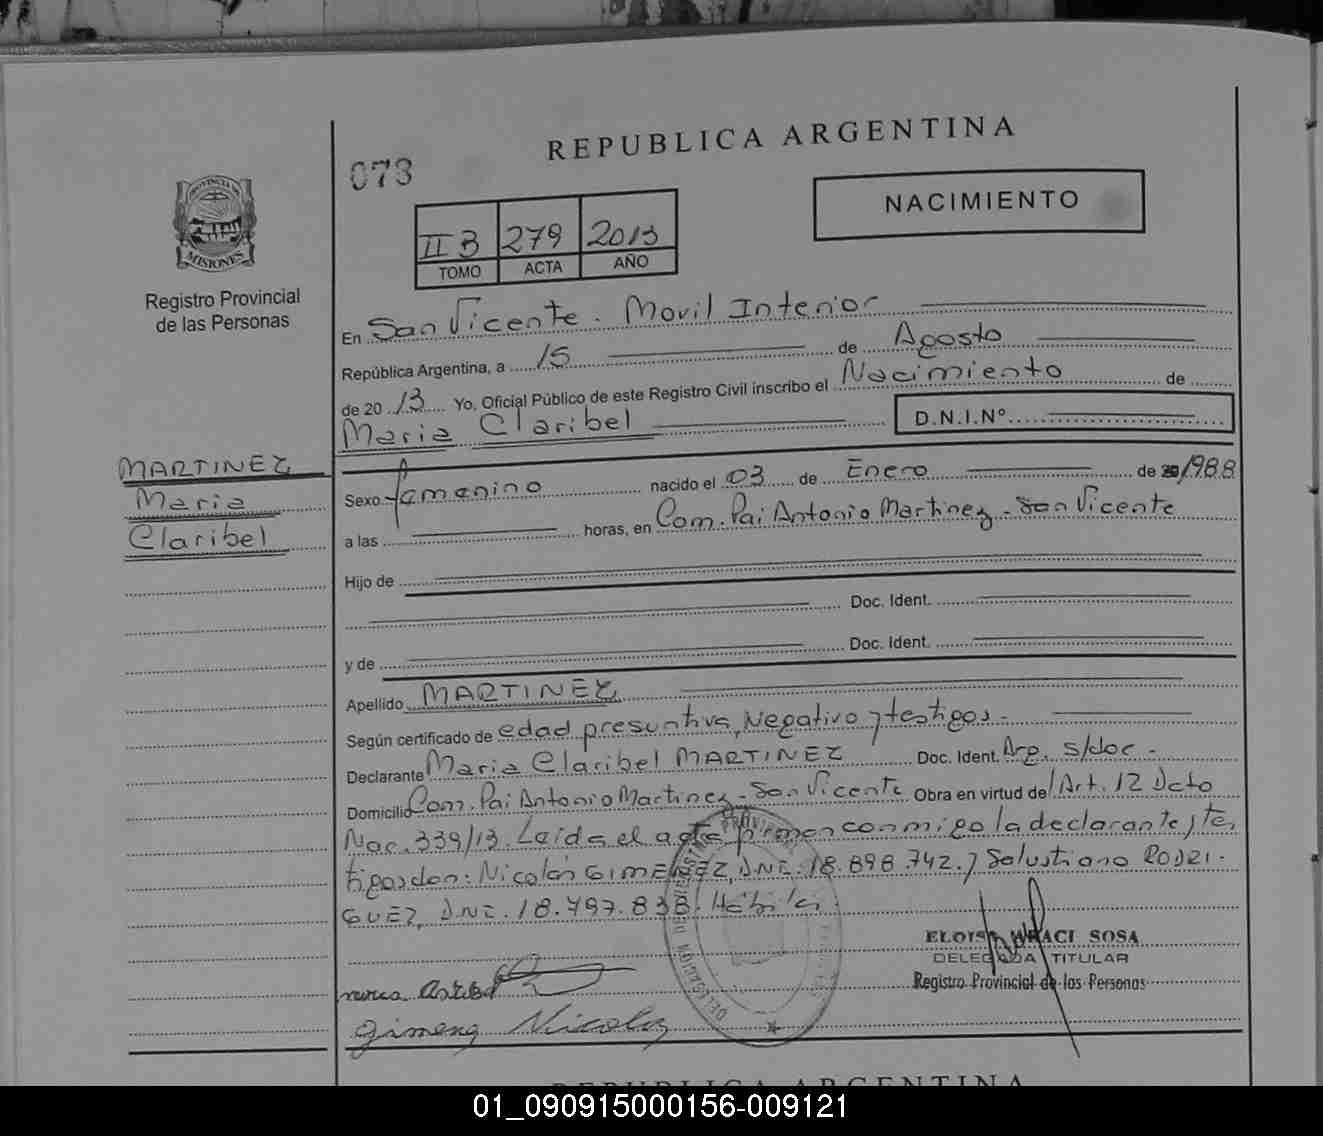 REPUBLICA ARGENTINA
073
NACIMIENTO
PROVINCIA DE
MISIONES
II B 279 2013
TOMO ACTA AÑO
Registro Provincial
de las Personas
En San Vicente. Movil Interior
República Argentina, a 15 de Agosto
de 20 13 Yo, Oficial Público de este Registro Civil inscribo el Nacimiento de
Maria Claribel D.N.I.Nº
MARTINEZ
Maria
Claribel
Sexo femenino nacido el 03 de Enero de 1988
a las horas, en Com. Pai Antonio Martinez - San Vicente
Hijo de
Doc. Ident.
y de Doc. Ident.
Apellido MARTINEZ
Según certificado de edad presuntiva, Negativo y testigos.
Declarante Maria Claribel MARTINEZ Doc. Ident. Arg. s/doc -
Domicilio Com. Pai Antonio Martinez - San Vicente Obra en virtud de Art. 12 Dcto
Nac. 339/13. Leida el acta firman conmigo la declarante y tes
tigos don: Nicolás GIMENEZ, DNI. 18.898.742. y Salustiano RODRI-
GUEZ, DNI. 18.797.838. Hábiles.
ELOISA ARACI SOSA
DELEGADA TITULAR
Registro Provincial de las Personas
Gimenez Nicolas
REPUBLICA ARGENTINA
01_090915000156-009121